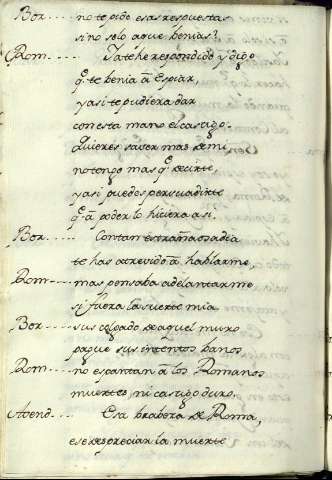 Bor.... no te pido esas respuestas
sino solo aque benias?
Rom.... Ya te he respondido y digo
q.e te benia â Espiar,
y asi te pudiera dar
con esta mano el castigo.
quieres saver mas de mi
no tengo mas q.e decirte,
y asi puedes persuadirte
q.e â poder lo hiciera asi.
Bor.... Con tan estraña osadia
te has atrevido â hablarme,
Rom.... mas pensaba adelantarme
si fuera la suerte mia
Bor.... sus colgado de aquel muro
pague sus intentos banos
Rom.... no espantan â los Romanos
muertes, ni castigo duro.
Abend.... Esa brabeza de Roma,
ese despreciar la muerte